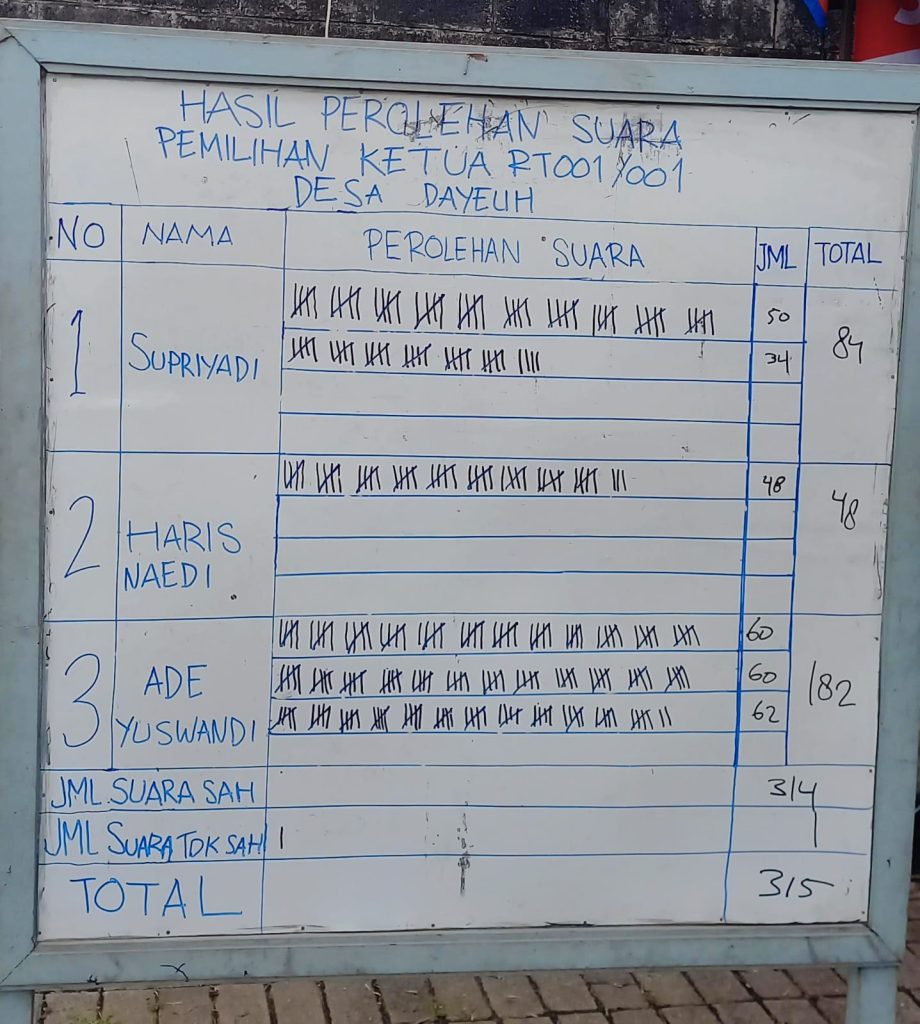 HASIL PEROLEHAN SUARA
PEMILIHAN KETUA RT001/001
DESA DAYEUH
NO NAMA PEROLEHAN SUARA JML TOTAL
1 SUPRIYADI 50 84
34
2 HARIS NAEDI 48 48
3 ADE YUSWANDI 60 182
60
62
JML SUARA SAH 314
JML SUARA TDK SAH 1
TOTAL 315